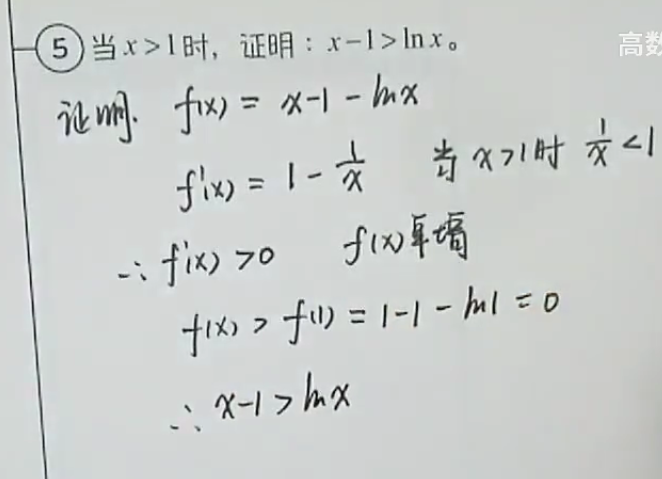 高数
⑤ 当 x > 1 时，证明：x - 1 > ln x。
证明. f(x) = x - 1 - ln x
f'(x) = 1 - 1/x 当 x > 1 时 1/x < 1
∴ f'(x) > 0 f(x) 单增
f(x) > f(1) = 1 - 1 - ln 1 = 0
∴ x - 1 > ln x